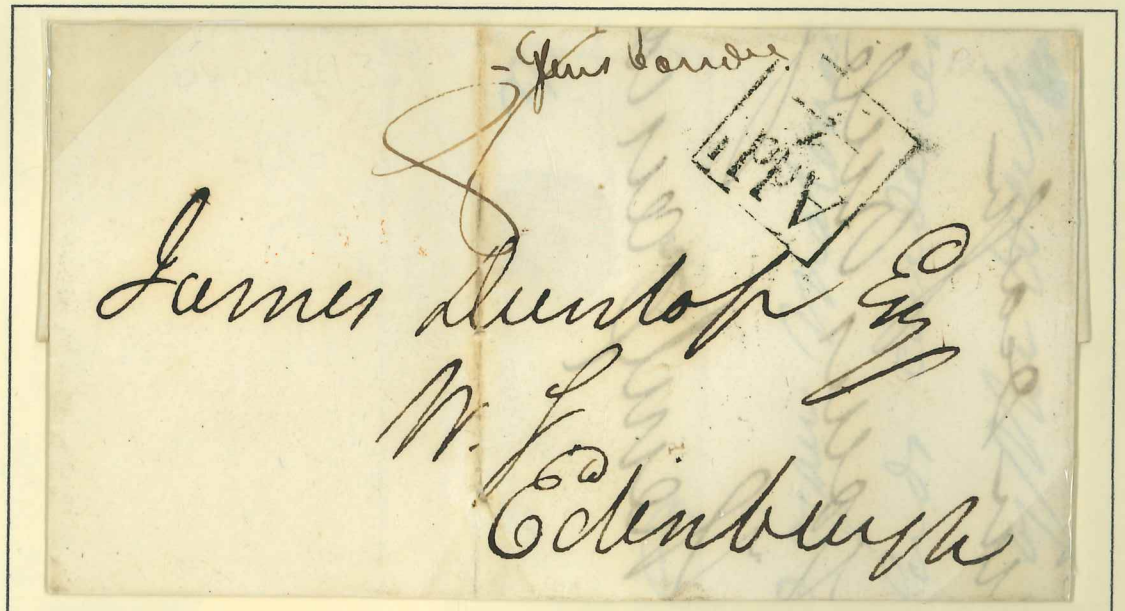 8
Add'l
½
James Dunlop Esq
W. S.
Edinburgh